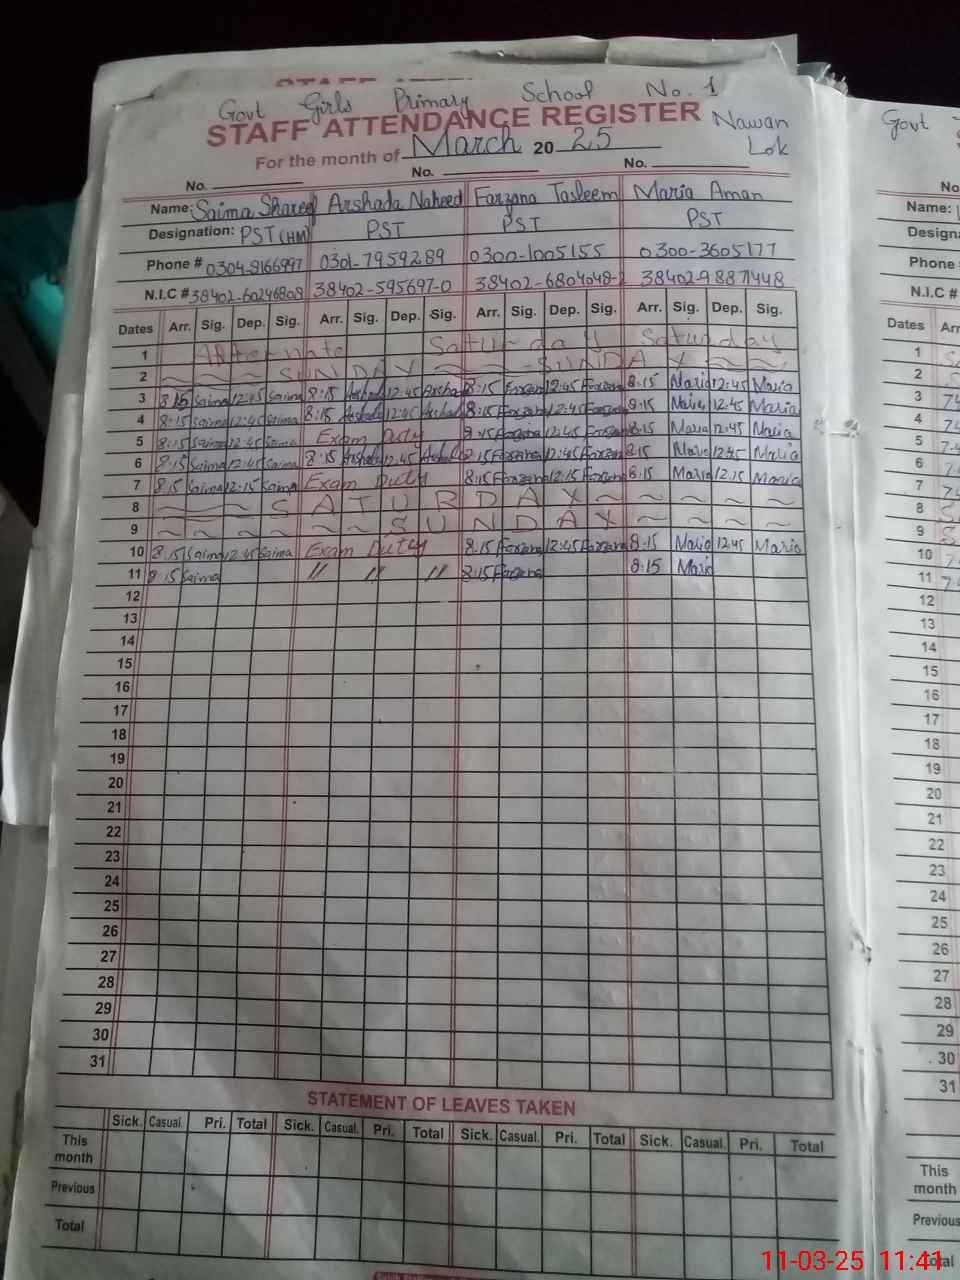 Govt Girls Primary School No. 1
STAFF ATTENDANCE REGISTER Nawan Lok
For the month of March 20 25
No. No. No.
Name: Saima Shareef Arshada Naheed Farzana Tasleem Maria Aman
Designation: PST (HM) PST PST PST
Phone # 0304-8166997 0301-7959289 0300-1005155 0300-3605177
N.I.C # 38402-60246808 38402-595697-0 38402-6804048-2 38402-9887448
Dates Arr. Sig. Dep. Sig. Arr. Sig. Dep. Sig. Arr. Sig. Dep. Sig. Arr. Sig. Dep. Sig.
1 Alternate Saturday Saturday
2 ~ ~ ~ SUNDAY ~ ~ ~ SUNDAY ~ ~ ~
3 8:15 Saima 12:45 Saima 8:15 Arshada 12:45 Arshada 8:15 Farzana 12:45 Farzana 8:15 Maria 12:45 Maria
4 8:15 Saima 12:45 Saima 8:15 Arshada 12:45 Arshada 8:15 Farzana 12:45 Farzana 8:15 Maria 12:45 Maria
5 8:15 Saima 12:45 Saima Exam Duty Farzana 12:45 Farzana 8:15 Maria 12:45 Maria
6 8:15 Saima 12:45 Saima 8:15 Arshada 12:45 Arshada 8:15 Farzana 12:45 Farzana 8:15 Maria 12:45 Maria
7 8:15 Saima 12:15 Saima Exam Duty 8:15 Farzana 12:15 Farzana 8:15 Maria 12:15 Maria
8 ~ ~ ~ SATURDAY ~ ~ ~ ~ ~
9 ~ ~ ~ ~ ~ ~ SUNDAY ~ ~ ~ ~
10 8:15 Saima 12:45 Saima Exam Duty 8:15 Farzana 12:45 Farzana 8:15 Maria 12:45 Maria
11 8:15 Saima " " " 8:15 Farzana 8:15 Maria
12
13
14
15
16
17
18
19
20
21
22
23
24
25
26
27
28
29
30
31
STATEMENT OF LEAVES TAKEN
Sick. Casual. Pri. Total Sick. Casual. Pri. Total Sick. Casual. Pri. Total Sick. Casual. Pri. Total
This month
Previous
Total
Govt
No
Name:
Design
Phone
N.I.C #
Dates Arr
1
2
3
4
5
6
7
8
9
10
11
12
13
14
15
16
17
18
19
20
21
22
23
24
25
26
27
28
29
30
31
This month
Previous
Total
11-03-25 11:41